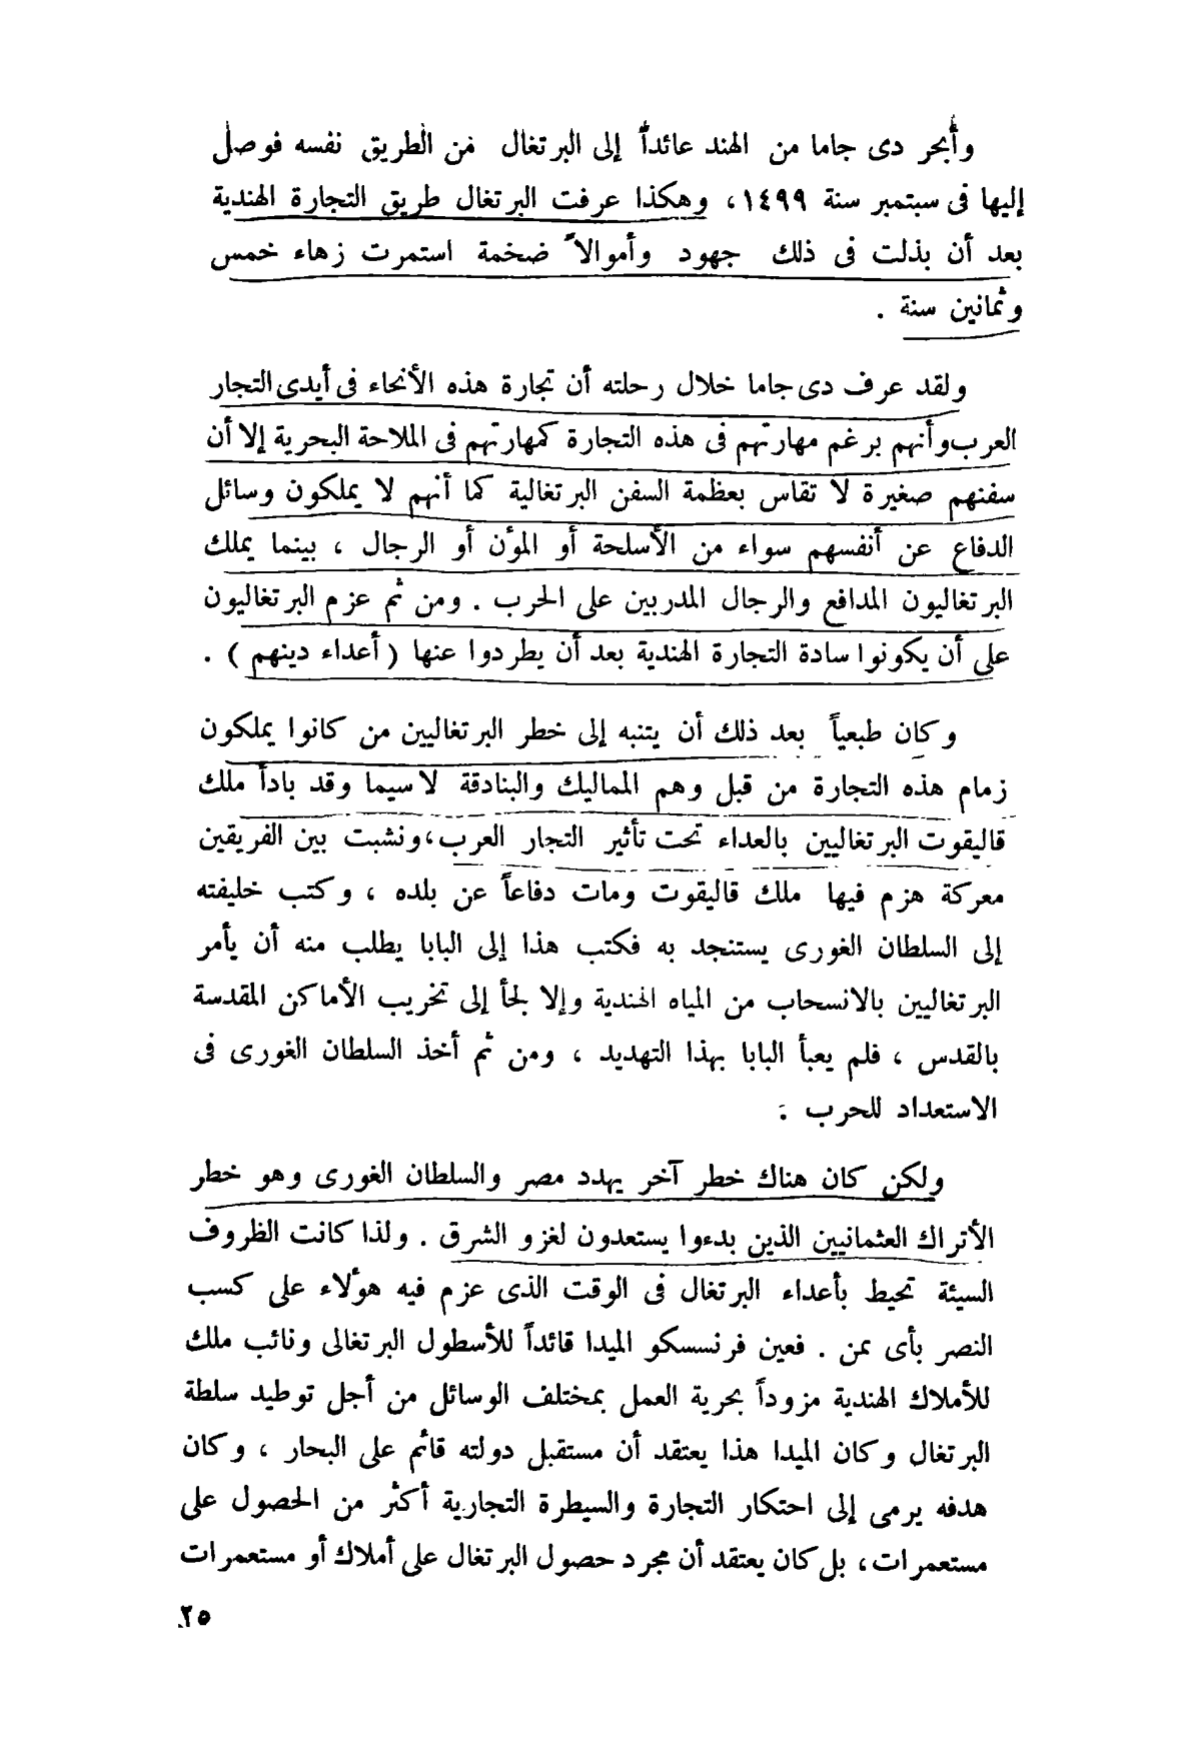 وأبحر دى جاما من الهند عائداً إلى البرتغال من الطريق نفسه فوصل
إليها فى سبتمبر سنة ١٤٩٩ ، وهكذا عرفت البرتغال طريق التجارة الهندية
بعد أن بذلت فى ذلك جهود وأموالاً ضخمة استمرت زهاء خمس
وثمانين سنة .
ولقد عرف دى جاما خلال رحلته أن تجارة هذه الأنحاء فى أيدى التجار
العرب وأنهم برغم مهارتهم فى هذه التجارة كمهارتهم فى الملاحة البحرية إلا أن
سفنهم صغيرة لا تقاس بعظمة السفن البرتغالية كما أنهم لا يملكون وسائل
الدفاع عن أنفسهم سواء من الأسلحة أو المؤن أو الرجال ، بينما يملك
البرتغاليون المدافع والرجال المدربين على الحرب . ومن ثم عزم البرتغاليون
على أن يكونوا سادة التجارة الهندية بعد أن يطردوا عنها ( أعداء دينهم ) .
وكان طبعياً بعد ذلك أن يتنبه إلى خطر البرتغاليين من كانوا يملكون
زمام هذه التجارة من قبل وهم المماليك والبنادقة لاسيما وقد بادأ ملك
قاليقوت البرتغاليين بالعداء تحت تأثير التجار العرب ، ونشبت بين الفريقين
معركة هزم فيها ملك قاليقوت ومات دفاعاً عن بلده ، وكتب خليفته
إلى السلطان الغورى يستنجد به فكتب هذا إلى البابا يطلب منه أن يأمر
البرتغاليين بالانسحاب من المياه الهندية وإلا لجأ إلى تخريب الأماكن المقدسة
بالقدس ، فلم يعبأ البابا بهذا التهديد ، ومن ثم أخذ السلطان الغورى فى
الاستعداد للحرب .
ولكن كان هناك خطر آخر يهدد مصر والسلطان الغورى وهو خطر
الأتراك العثمانيين الذين بدءوا يستعدون لغزو الشرق . ولذا كانت الظروف
السيئة تحيط بأعداء البرتغال فى الوقت الذى عزم فيه هؤلاء على كسب
النصر بأى ثمن . فعين فرنسسكو الميدا قائداً للأسطول البرتغالى ونائب ملك
للأملاك الهندية مزوداً بحرية العمل بمختلف الوسائل من أجل توطيد سلطة
البرتغال وكان الميدا هذا يعتقد أن مستقبل دولته قائم على البحار ، وكان
هدفه يرمى إلى احتكار التجارة والسيطرة التجارية أكثر من الحصول على
مستعمرات ، بل كان يعتقد أن مجرد حصول البرتغال على أملاك أو مستعمرات
٢٥